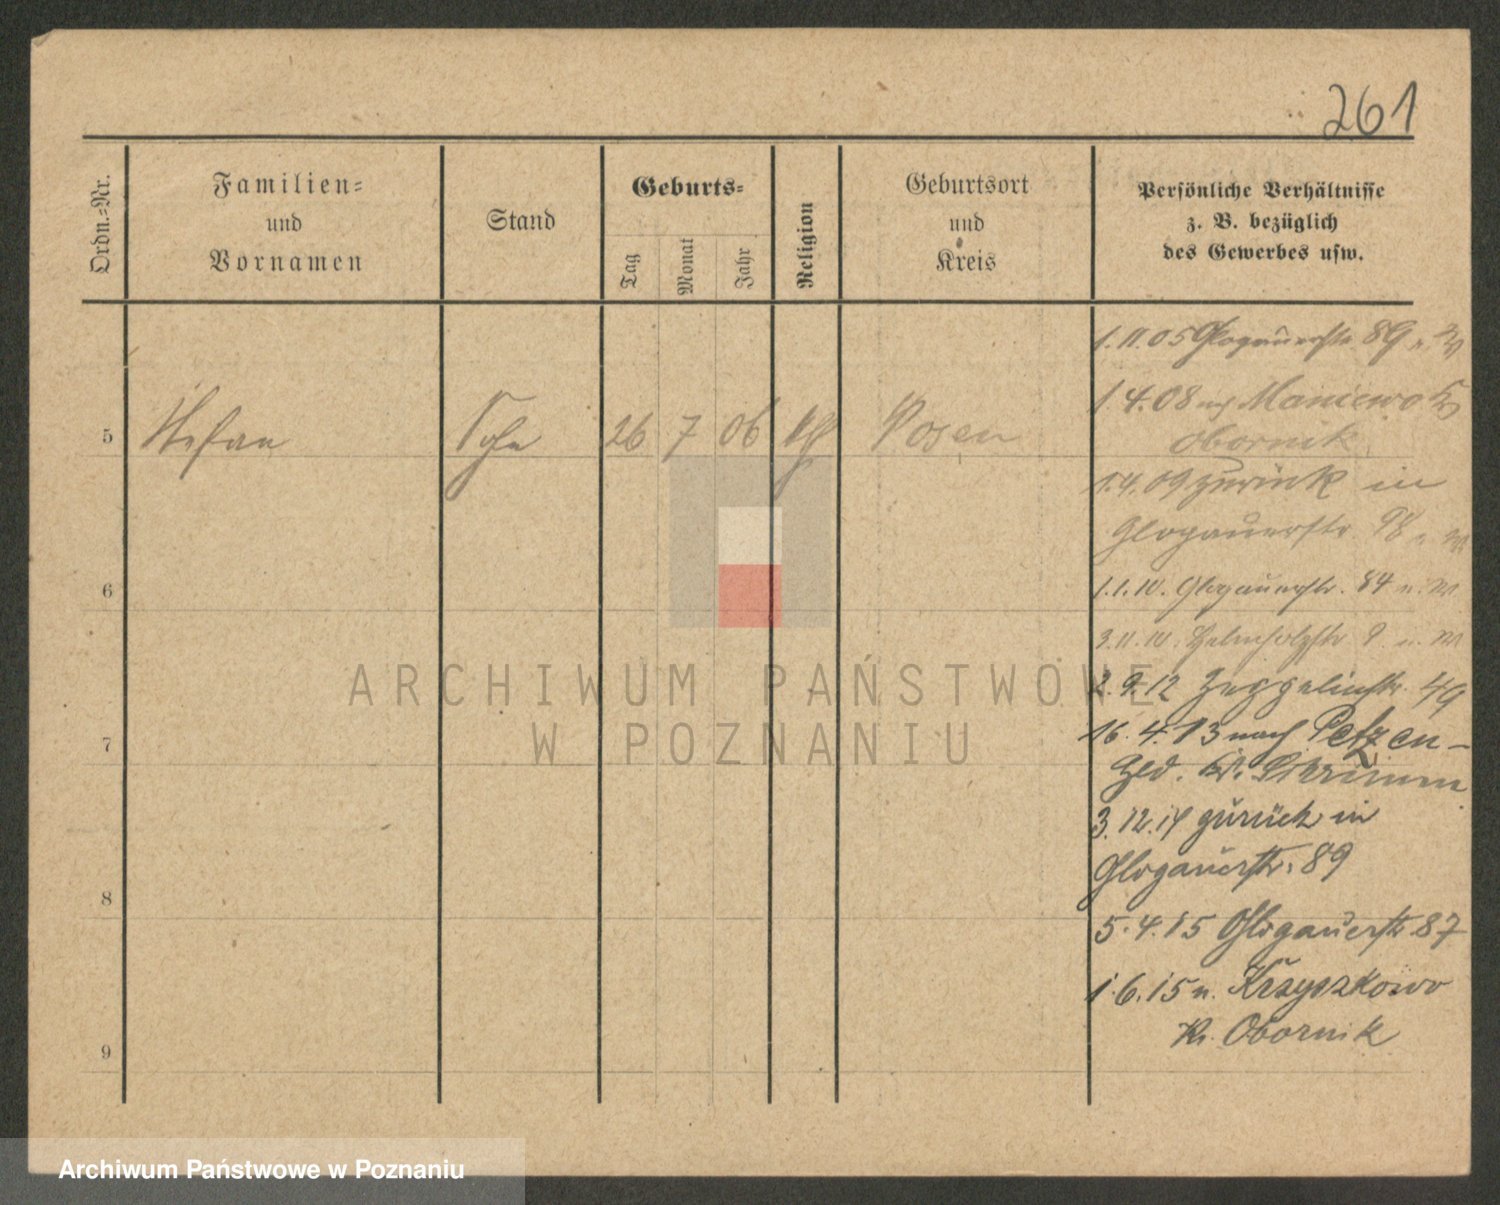 261
Ordn.=Nr.
Familien=
und
Vornamen
Stand
Geburts=
Tag
Monat
Jahr
Religion
Geburtsort
und
Kreis
Persönliche Verhältnisse
z. B. bezüglich
des Gewerbes usw.
1.11.05 Glogauerstr. 89
1.4.08 Maniewo
Obornik
5 Stefan Sohn 26 7 06 Posen
1.4.09 zurück in
Glogauerstr 98
6
1.1.10. Glogauerstr. 84
3.11.10.
2.9.12 Zeppelinstr. 49
16.4.13 nach Petzen-
7
Hld. Kr. Schrimm
3.12.14 zurück in
Glogauerstr. 89
8
5.4.15 Glogauerstr 87
1.6.15 n. Krzyszkowo
Kr. Obornik
9
ARCHIWUM PAŃSTWOWE
W POZNANIU
Archiwum Państwowe w Poznaniu